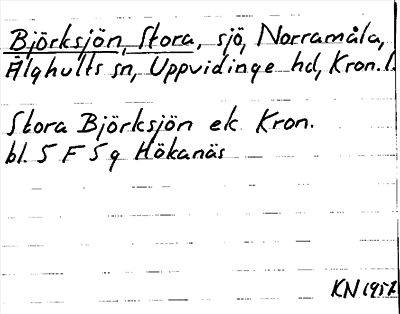 Björksjön, Stora, sjö, Norramåla,
Älghults sn, Uppvidinge hd, Kron. l.
Stora Björksjön ek Kron.
bl. 5 F 5 g Hökanäs
KN 1957